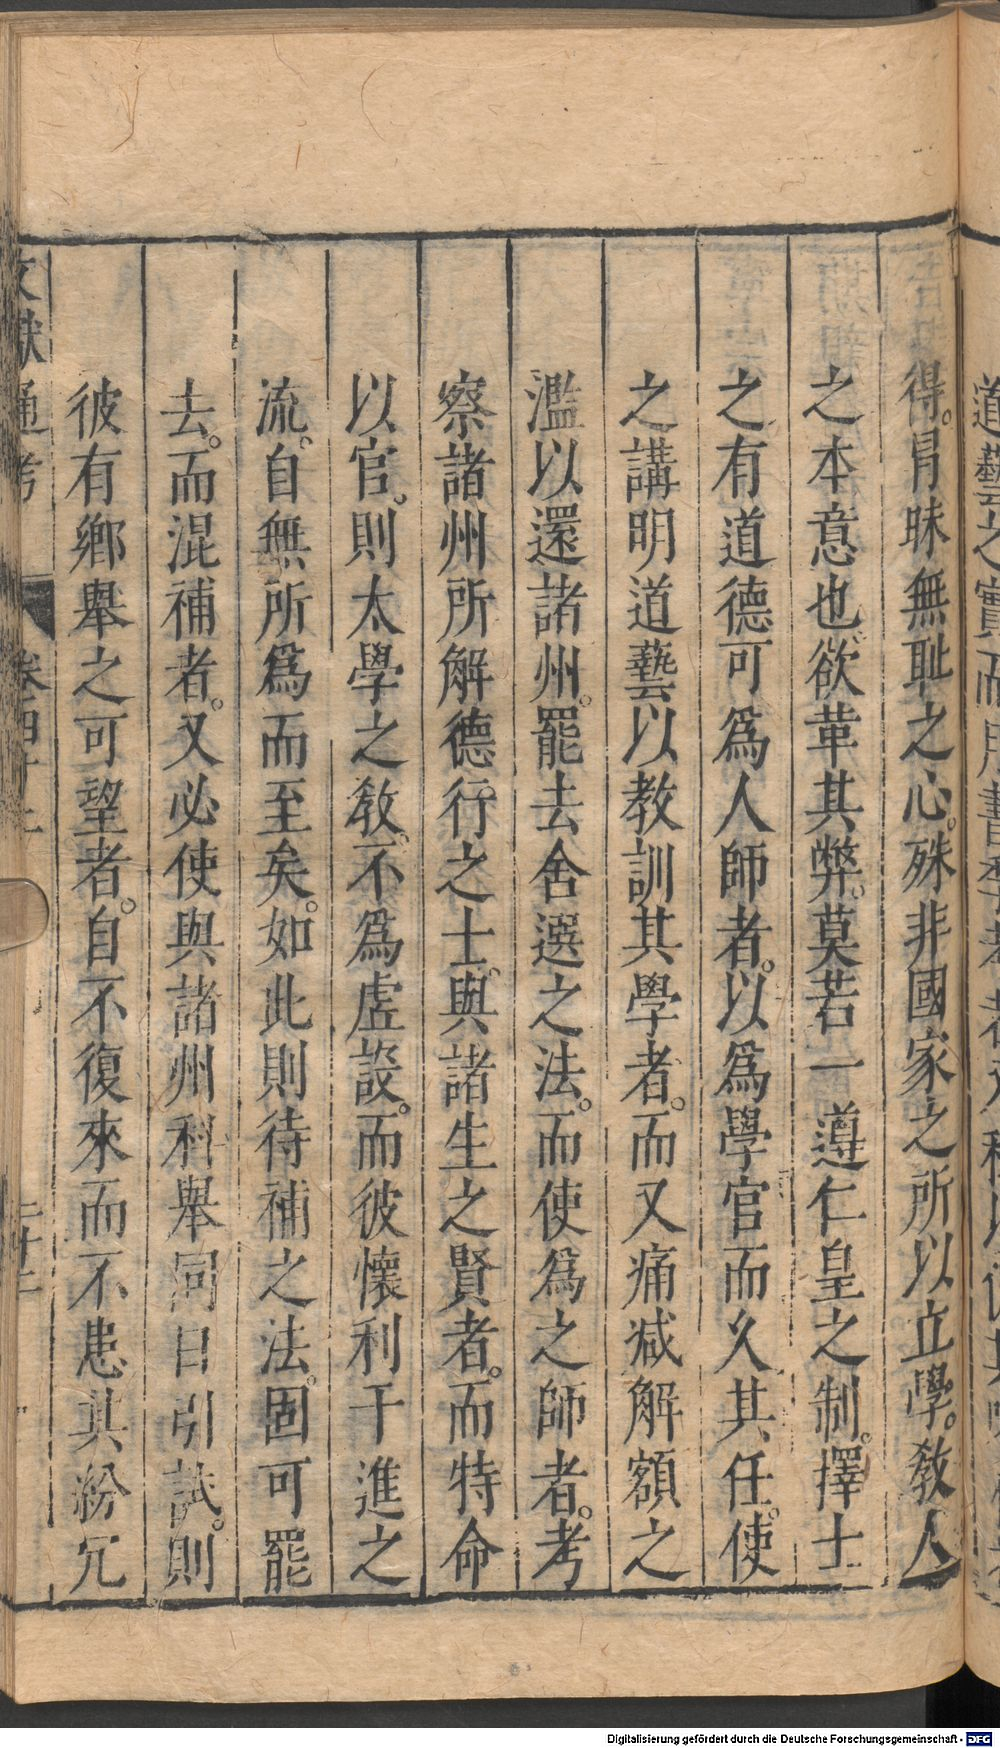 得。冐昧無耻之心。殊非國家之所以立學。敎人
之本意也。欲革其弊。莫若一遵仁皇之制。擇士
之有道德可爲人師者。以爲學官而久其任。使
之講明道藝以教訓其學者。而又痛减解額之
濫以還諸州。罷去舍選之法。而使爲之師者。考
察諸州所解德行之士。與諸生之賢者。而特命
以官。則太學之敎。不爲虛設。而彼懷利干進之
流。自無所爲而至矣。如此則待補之法。固可罷
去。而混補者。又必使與諸州科舉同日引試。則
彼有鄉舉之可望者。自不復來而不患其紛冗
文獻通考
卷四十二
Digitalisierung gefördert durch die Deutsche Forschungsgemeinschaft - DFG